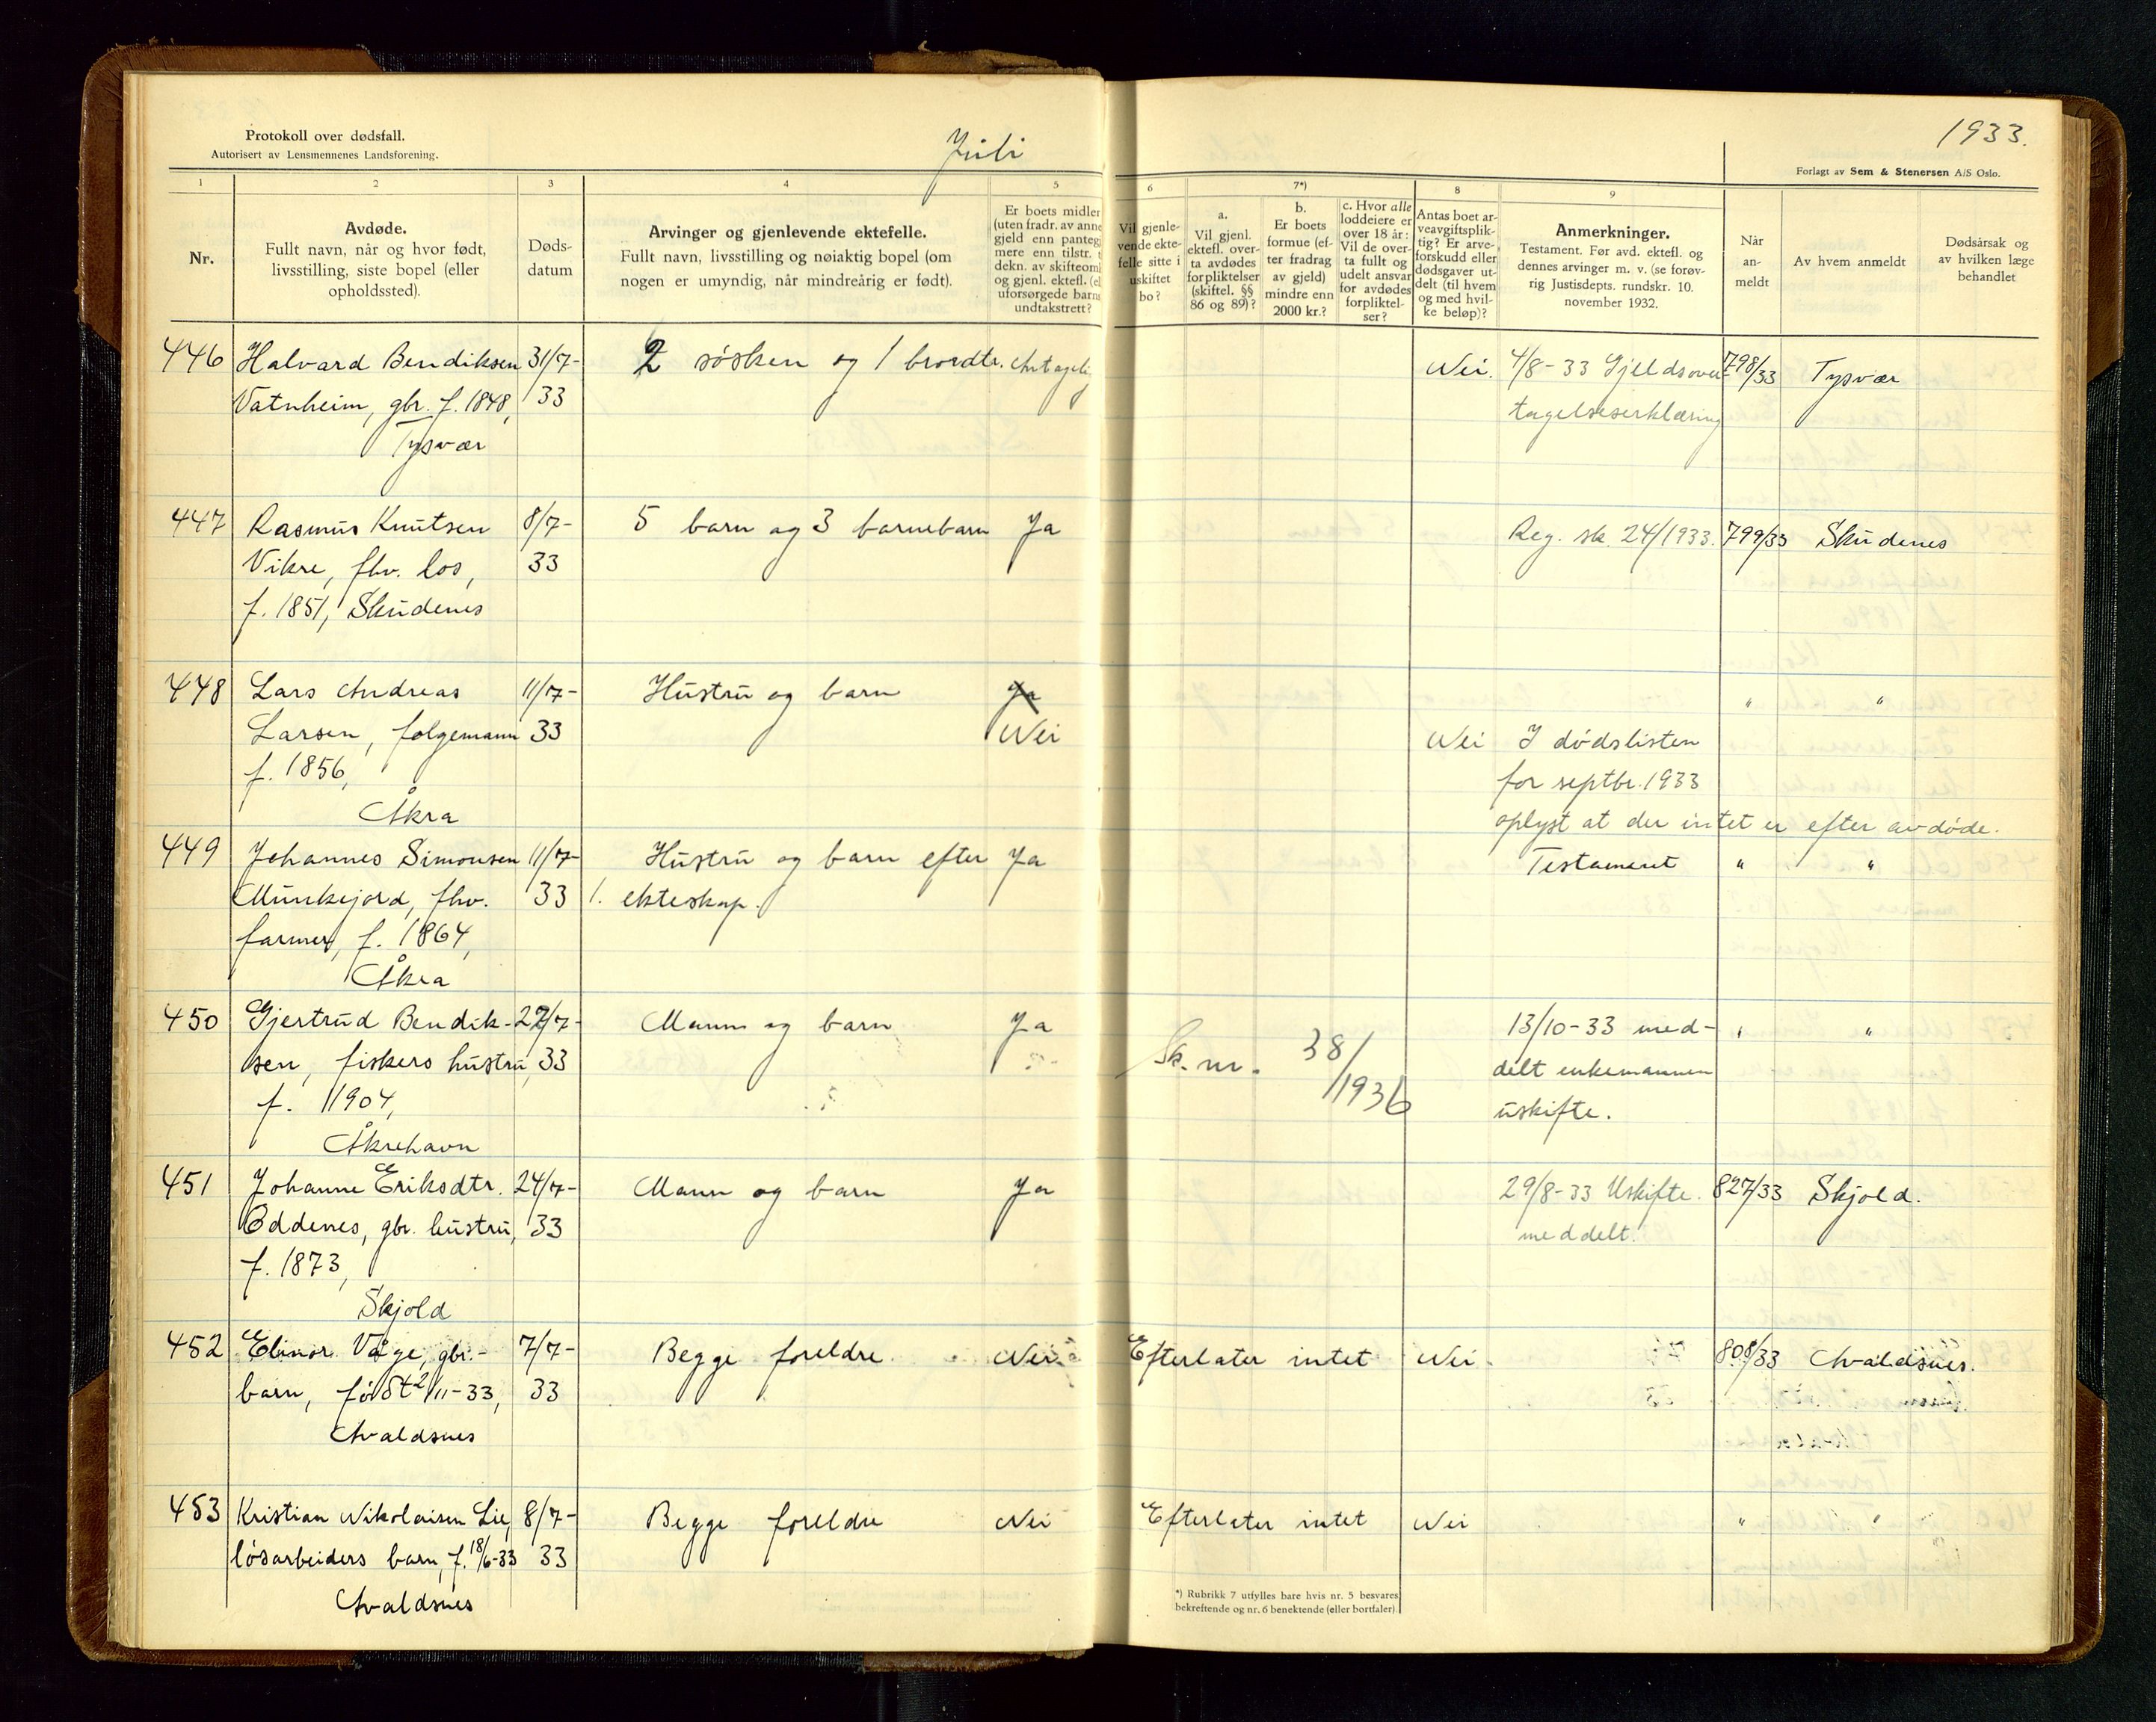 Protokoll over dødsfall.
Autorisert av Lensmennenes Landsforening.
Juli
1933.
Forlagt av Sem & Stenersen A/S Oslo.
1 2 3 4 5 6 7*) 8 9
Nr.
Avdøde.
Fullt navn, når og hvor født,
livsstilling, siste bopel (eller
opholdssted).
Døds-
datum
Arvinger og gjenlevende ektefelle.
Fullt navn, livsstilling og nøiaktig bopel (om
nogen er umyndig, når mindreårig er født).
Er boets midler
(uten fradr. av anne
gjeld enn panteg
mere enn tilstr. t
dekn. av skifteom
og gjenl. ektefl. (el
uforsørgede barns
undtakstrett?
Vil gjenle-
vende ekte-
felle sitte i
uskiftet
bo?
a.
Vil gjenl.
ektefl. over-
ta avdødes
forpliktelser
(skiftel. §§
86 og 89)?
b.
Er boets
formue (ef-
ter fradrag
av gjeld)
mindre enn
2000 kr.?
c. Hvor alle
loddeiere er
over 18 år:
Vil de over-
ta fullt og
udelt ansvar
for avdødes
forpliktel-
ser?
Antas boet ar-
veavgiftsplik-
tig? Er arve-
forskudd eller
dødsgaver ut-
delt (til hvem
og med hvil-
ke beløp)?
Anmerkninger.
Testament. Før avd. ektefl. og
dennes arvinger m. v. (se forøv-
rig Justisdepts. rundskr. 10.
november 1932.
Når
an-
meldt
Av hvem anmeldt
Dødsårsak og
av hvilken læge
behandlet
446 Halvard Bendiksen 31/7- 2 søsken og 1 brordtr. Antageli Nei. 4/8-33 Gjeldsover- 798/33 Tysvær
Vatnheim, gbr. f. 1848, 33 tagelseserklæring
Tysvær
447 Rasmus Knutsen 8/7- 5 barn og 3 barnebarn Ja Reg. sk. 24/1933. 799/33 Skudenes
Vikre, fhv. los, 33
f. 1851, Skudenes
448 Lars Andreas 11/7- Hustru og barn Ja " "
Larsen, følgemann 33 Nei Nei I dødslisten
f. 1856, for septbr. 1933
Åkra oplyst at der intet er efter avdøde.
449 Johannes Simonsen 11/7- Hustru og barn efter Ja Testament " "
Munkejord, fhv. 33 1. ekteskap.
farmer, f. 1864,
Åkra
450 Gjertrud Bendik- 27/7- Mann og barn Ja Sk. nr. 38/1936 13/10-33 med- " "
sen, fiskers hustru, 33 delt enkemannen
f. 1904, uskifte.
Åkrehavn
451 Johanne Eriksdtr. 24/7- Mann og barn Ja 29/8-33 Uskifte. 827/33 Skjold.
Oddenes, gbr. hustru, 33 meddelt.
f. 1873,
Skjold
452 Elinor Våge, gbr.- 7/7- Begge foreldre. Nei Efterlater intet Nei. 808/33 Avaldsnes.
barn, født 2/11-33, 33
Avaldsnes
453 Kristian Nikolaisen Lie, 8/7- Begge foreldre Nei Efterlater intet Nei " "
løsarbeiders barn, f. 18/6-33 33
Avaldsnes
*) Rubrikk 7 utfylles bare hvis nr. 5 besvares
bekreftende og nr. 6 benektende (eller bortfaler).